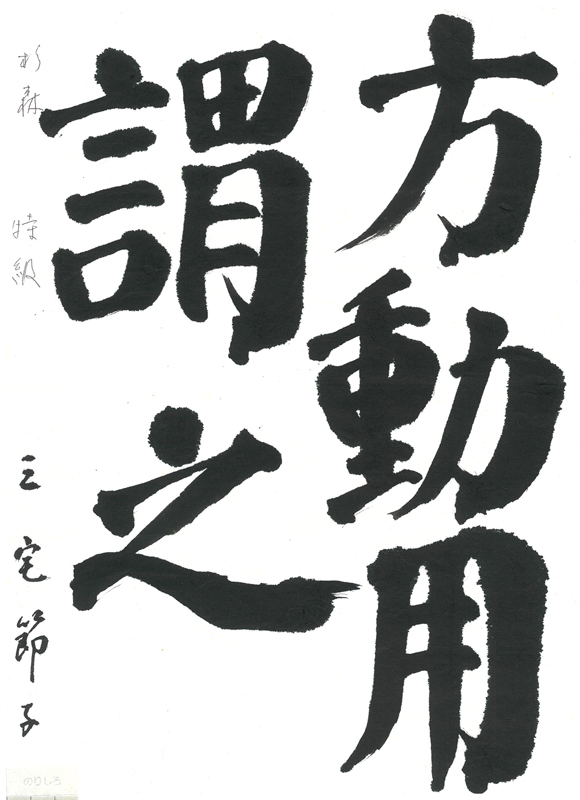 方動用
謂之
杉森 特級
三宅節子
のりしろ